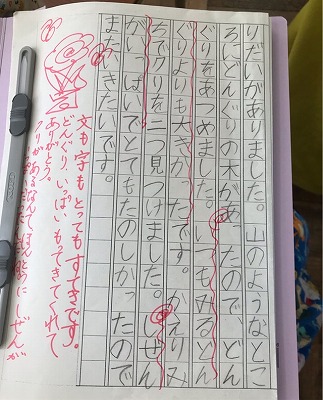 りだいがありました。山のようなとこ
ろにどんぐりの木があったので、どん
ぐりをあつめました。いつもみるどん
ぐりよりも大きかったです。かえりみ
ちでクリを二つ見つけました。しぜん
がいっぱいでとてもたのしかったので
またいきたいです。
文も字もとってもすてきです。
どんぐり、いっぱいもってきてくれて
ありがとう。
クリがあるなんて、ほんとうにしぜんが